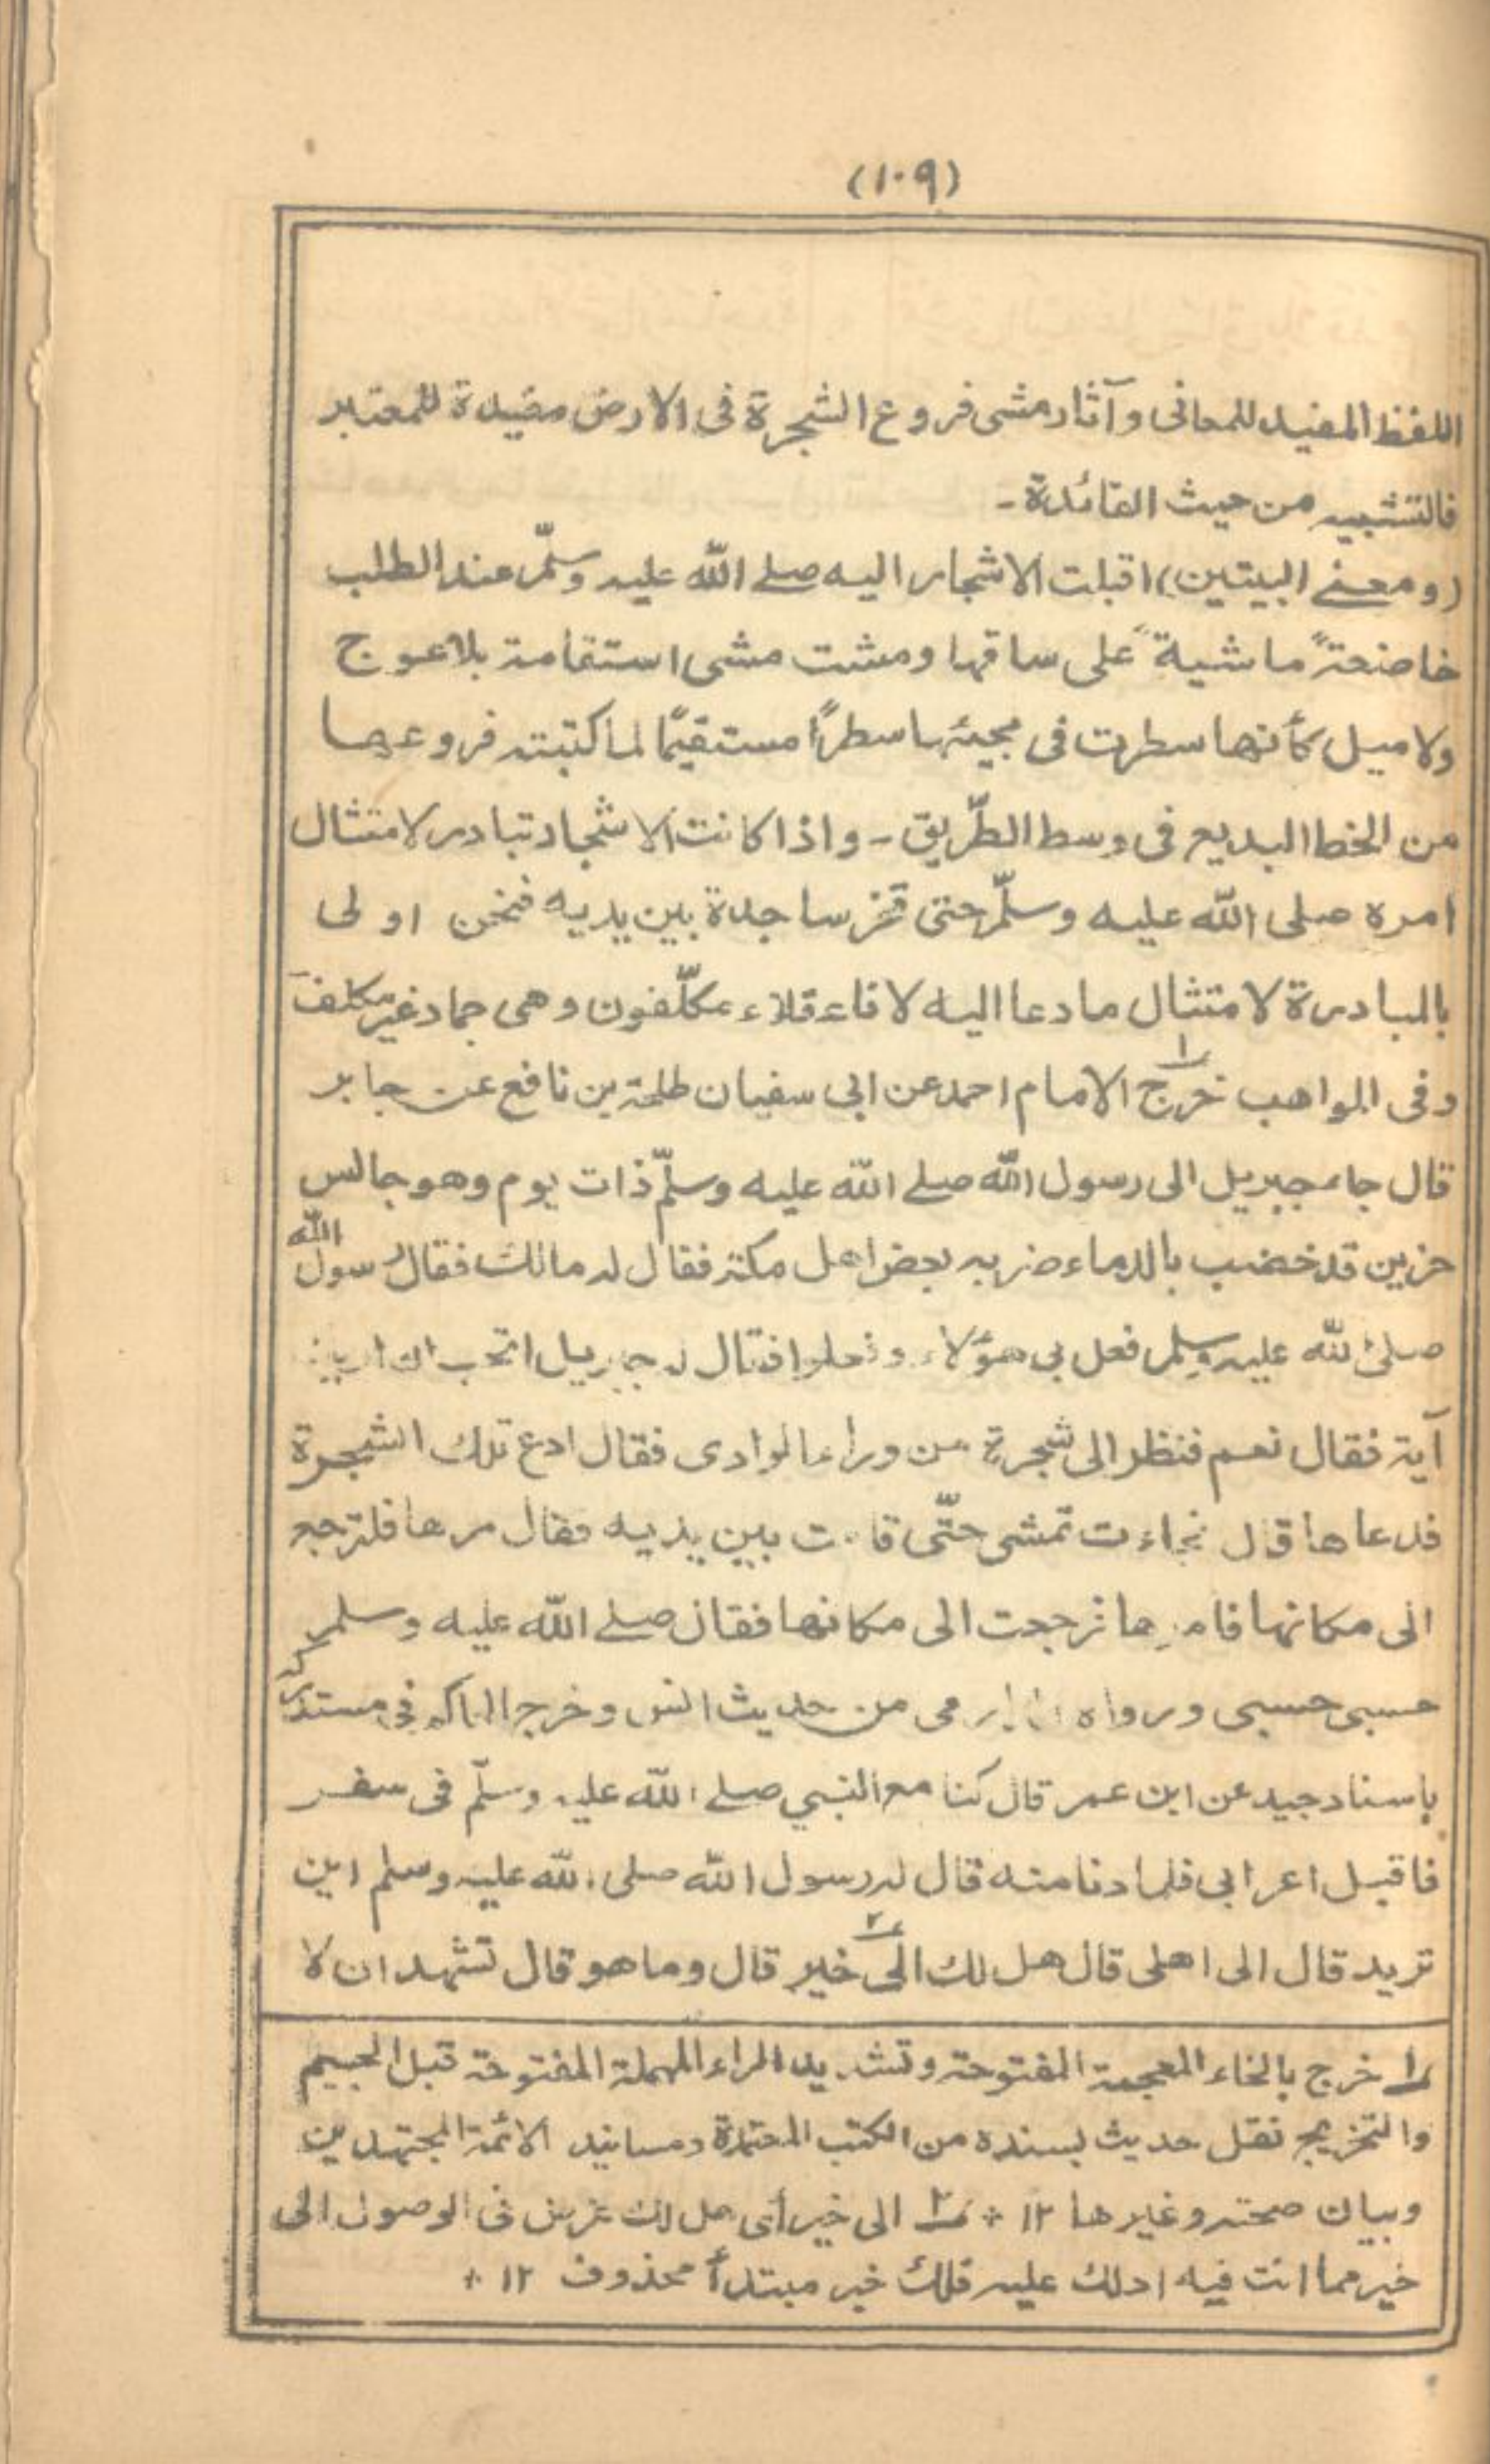 (١٠٩)
اللفظ المفيد للمعانى وآثار مشى فروع الشجرة فى الارض مفيدة للمعتبر
فالتشبيه من حيث الفائدة -
(ومعنے البيتين) اقبلت الاشجار اليه صلے اللّٰه عليه وسلّم عند الطلب
خاضعةً ماشيةً على ساقها ومشت مشى استقامة بلا عوج
ولا ميل كأنها سطرت فى مجيئها سطرًا مستقيمًا لما كتبته فروعها
من الخط البديع فى وسط الطّريق - واذا كانت الاشجار تبادر لامتثال
امره صلى اللّٰه عليه وسلّم حتى تخر ساجدة بين يديه فنحن اولى
بالمبادرة لامتثال ما دعا اليه لانا عقلاء مكلّفون وهى جماد غير مكلف
وفى المواهب خرج ١ الامام احمد عن ابى سفيان طلحة بن نافع عن جابر
قال جاء جبريل الى رسول اللّٰه صلے اللّٰه عليه وسلّم ذات يوم وهو جالس
حزين قد خضب بالدماء ضربه بعض اهل مكة فقال له مالك فقال رسول اللّٰه
صلى اللّٰه عليه وسلم فعل بى هؤلاء وفعلوا فقال له جبريل اتحب ان اريك
آية فقال نعم فنظر الى شجرة من وراء الوادى فقال ادع تلك الشجرة
فدعاها قال فجاءت تمشى حتّى قامت بين يديه فقال مرها فلترجع
الى مكانها فامرها فرجعت الى مكانها فقال صلے اللّٰه عليه وسلم
حسبى حسبى ورواه الدارمى من حديث انس وخرج الحاكم فى مستدركه
باسناد جيد عن ابن عمر قال كنا مع النبي صلے اللّٰه عليه وسلّم فى سفر
فاقبل اعرابى فلما دنا منه قال له رسول اللّٰه صلى اللّٰه عليه وسلم اين
تريد قال الى اهلى قال هل لك الى ٢ خير قال وما هو قال تشهد ان لا
١ خرج بالخاء المعجمة المفتوحة وتشديد الراء المهملة المفتوحة قبل الجيم
والتخريج نقل حديث بسنده من الكتب المعتمدة ومسانيد الائمة المجتهدين
وبيان صحته وغيرها ١٢ + ٢ الى خير أى هل لك غرض فى الوصول الى
خير مما انت فيه ادلك عليه فلك خبر مبتدأ محذوف ١٢ +